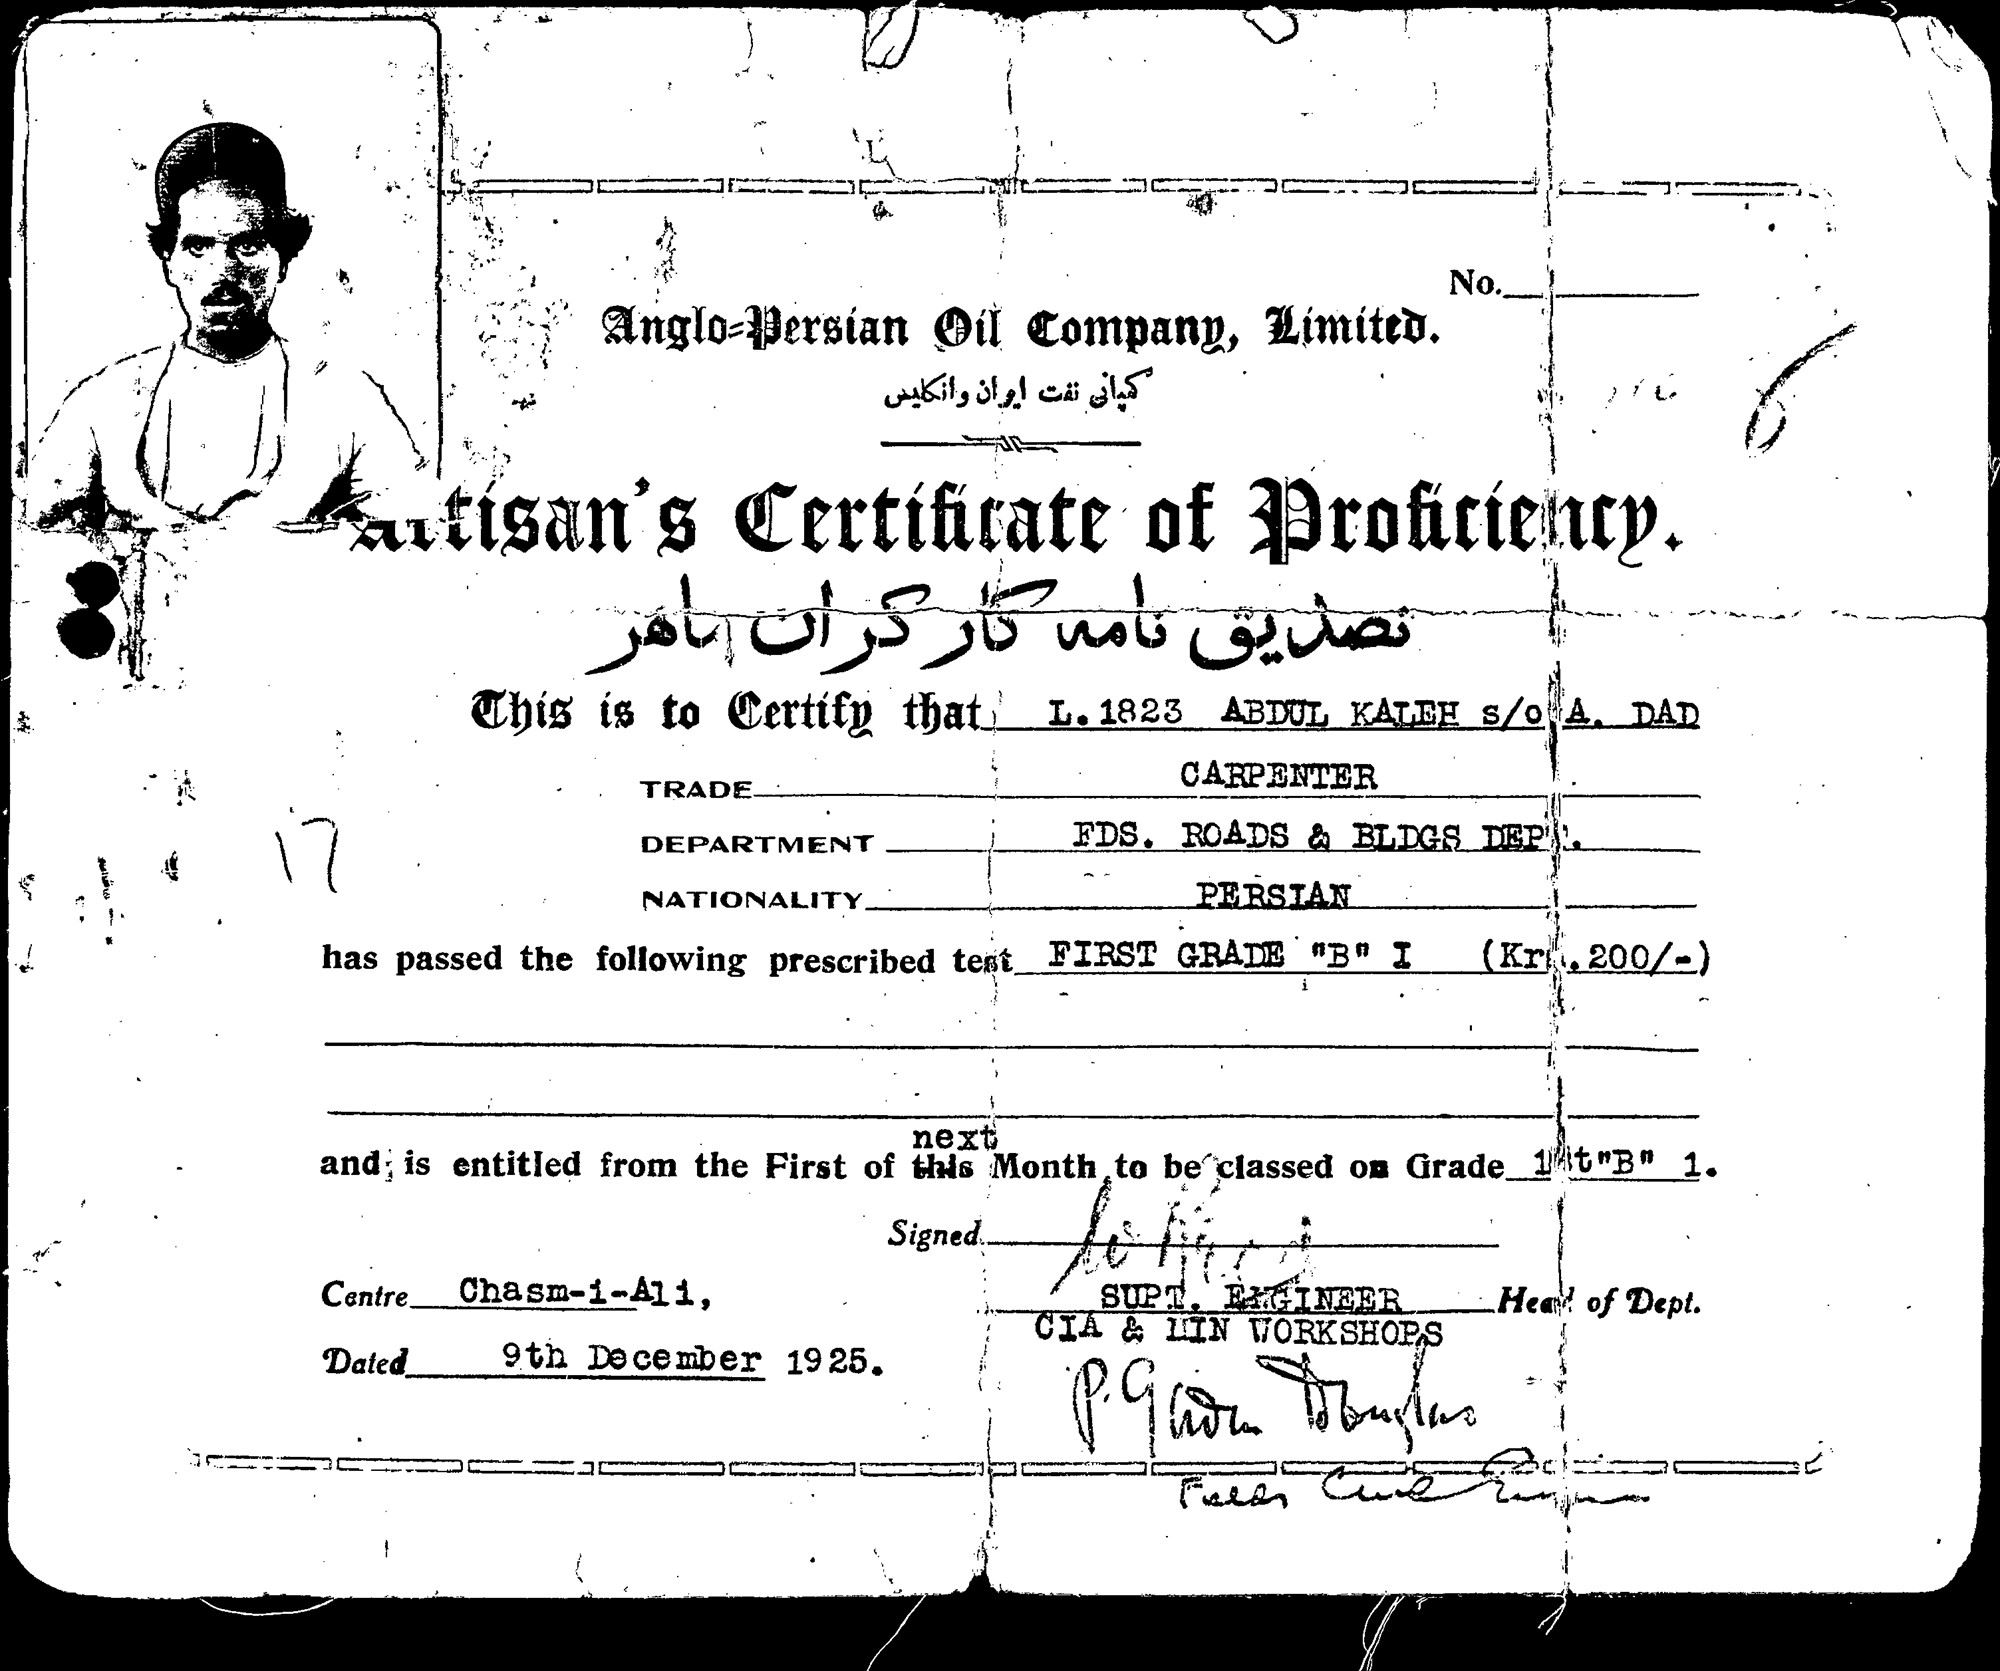 No.
Anglo-Persian Oil Company, Limited.
کمپانی نفت ایران وانگلیس
Artisan's Certificate of Proficiency.
تصدیق نامه کار کران ماهر
This is to Certify that L.1823 ABDUL KALEH s/o A. DAD
TRADE CARPENTER
DEPARTMENT FDS. ROADS & BLDGS DEPT.
NATIONALITY PERSIAN
17
has passed the following prescribed test FIRST GRADE "B" I (Krs.200/-)
next
and is entitled from the First of this Month to be classed on Grade 1st"B" 1.
Signed
Centre Chasm-i-Ali,
SUPT. ENGINEER Head of Dept.
CIA & LIN WORKSHOPS
Dated 9th December 1925.
P. Gordon Douglas
Fields Civil Engineer